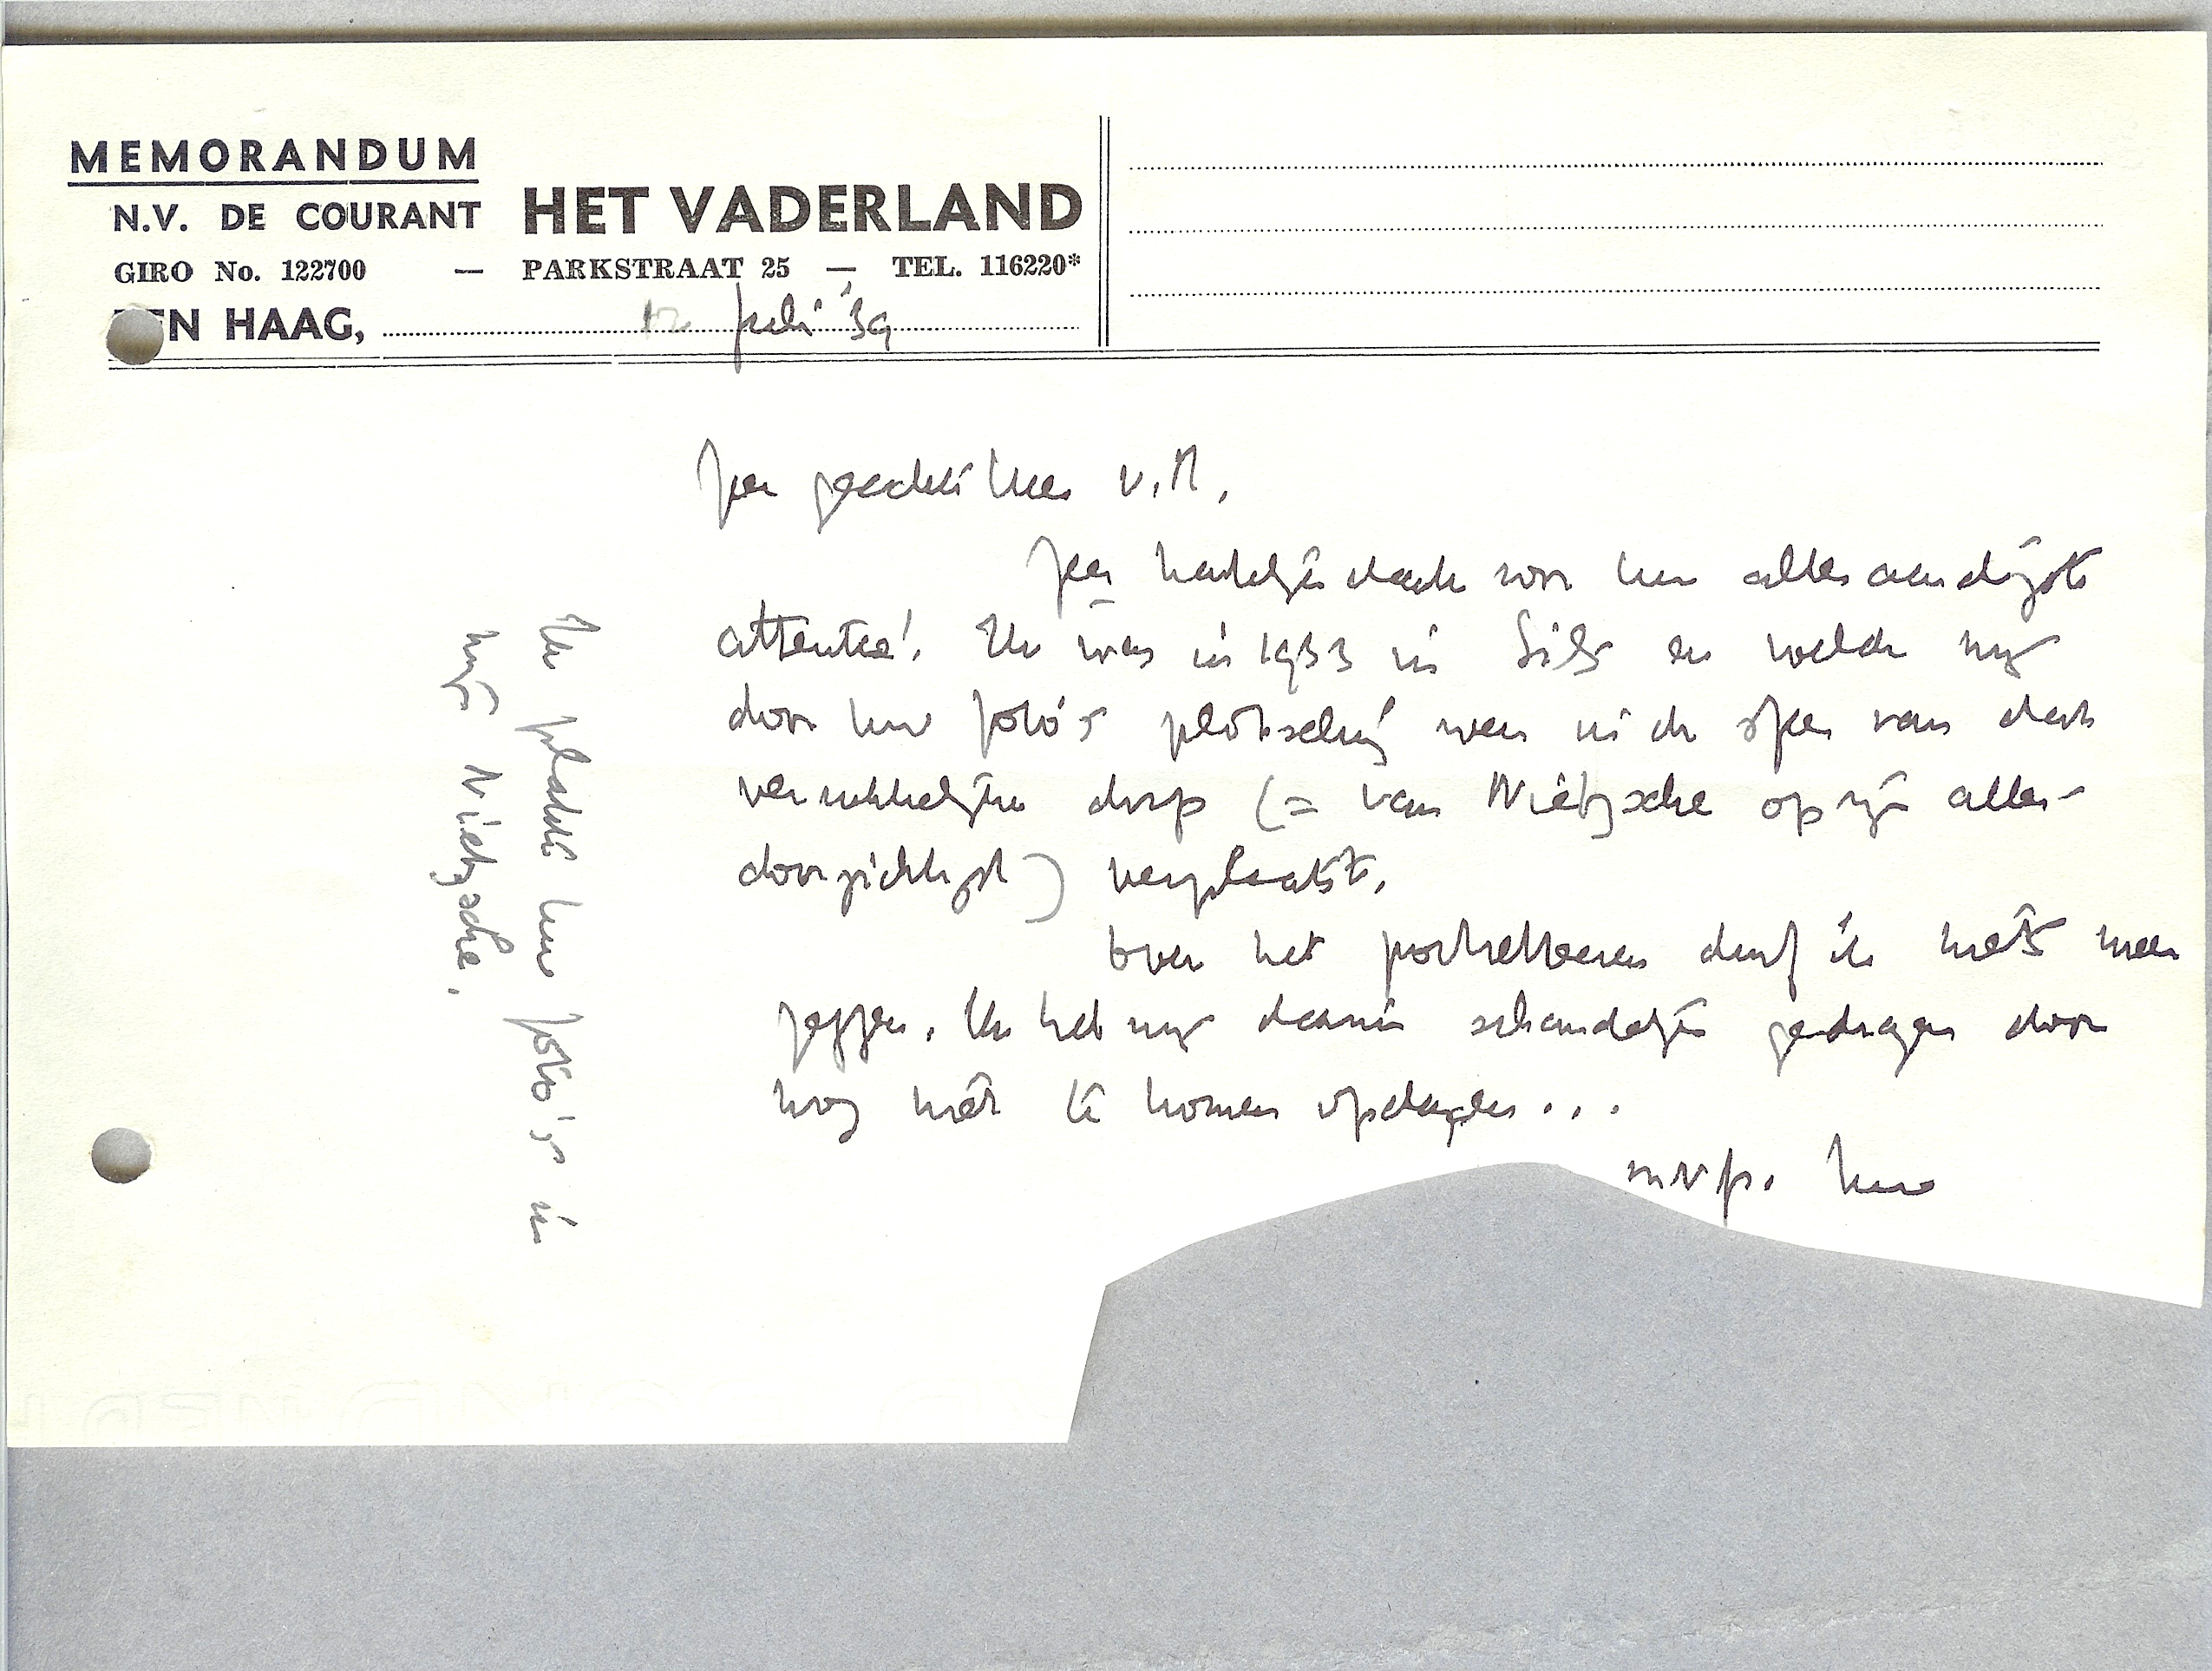 MEMORANDUM
N.V. DE COURANT HET VADERLAND
GIRO No. 122700 — PARKSTRAAT 25 — TEL. 116220*
DEN HAAG, 12 Juli '39
Zeer geachte Heer v.M.
Zeer hartelijk dank voor Uw alleraardigste
attentie! Ik was in 1933 in Sils en voelde mij
door Uw foto's plotseling weer in de sfeer van dat
verrukkelijke dorp (= van Nietzsche op zijn aller-
doorzichtigst) verplaatst.
Over het portretteeren durf ik niets meer
zeggen. Ik heb mij daarin schandelijk gedragen door
nog niet te komen opdagen...
m.v.gr. Uw
Ik plakte Uw foto's in
mijn Nietzsche.